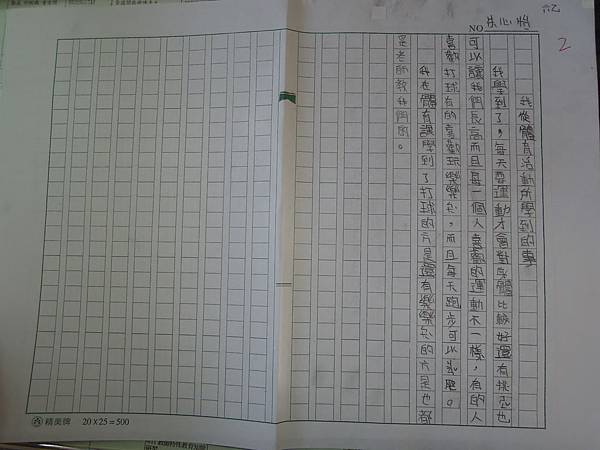 六乙
2
NO 朱心怡
我從體育活動所學到的事
我學到了，每天要運動才會對身體比較好還有挑也
可以讓我們長高而且每一個人喜歡的運動不一樣，有的人
喜歡打球有的喜歡玩樂樂，而且每天跑步可以減肥。
我在體育課學到了打球的方是還有樂樂的方是也都
是老師教我們的。
精美牌 20×25=500